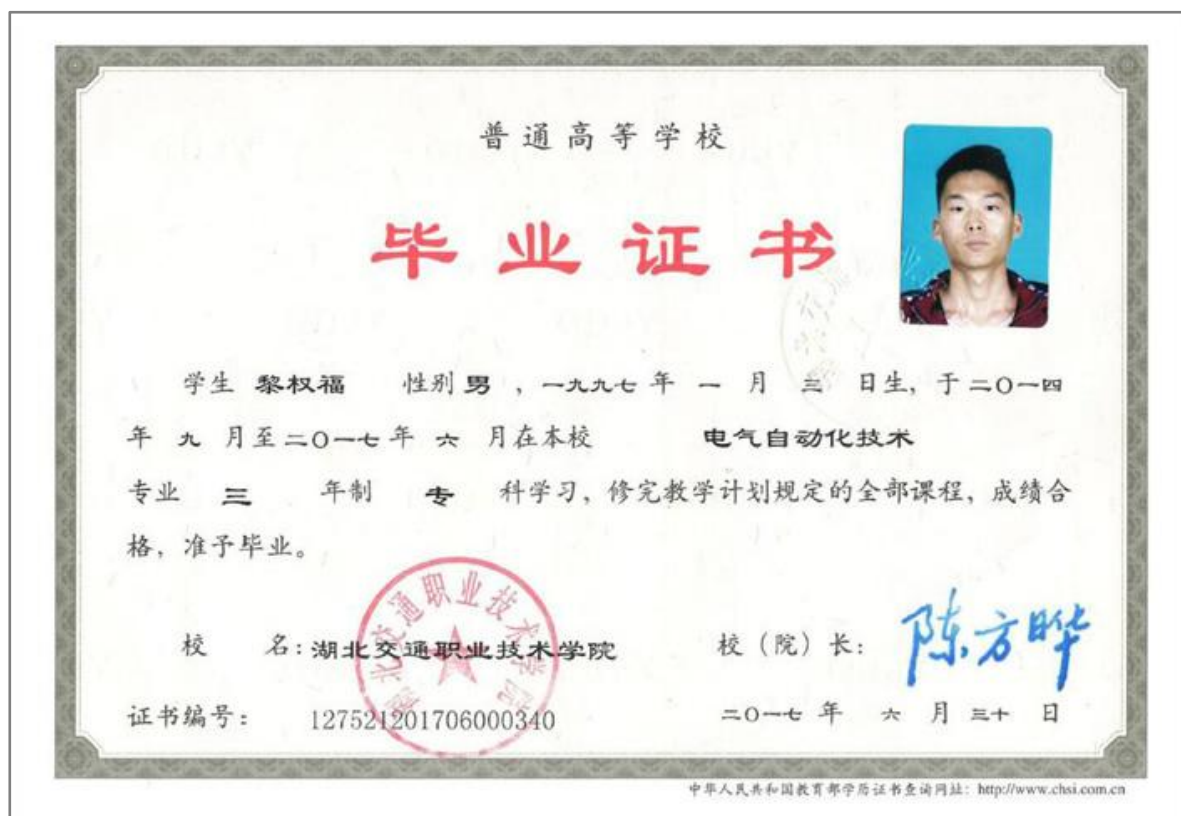 普通高等学校
毕业证书
学生 黎权福 性别 男 ，一九九七 年 一 月 三 日生，于 二〇一四
年 九 月至 二〇一七 年 六 月在本校 电气自动化技术
专业 三 年制 专 科学习，修完教学计划规定的全部课程，成绩合
格，准予毕业。
湖北交通职业技术学院
校 名：湖北交通职业技术学院 校（院）长：陈方晔
证书编号： 127521201706000340 二〇一七 年 六 月 三十 日
中华人民共和国教育部学历证书查询网址：http://www.chsi.com.cn